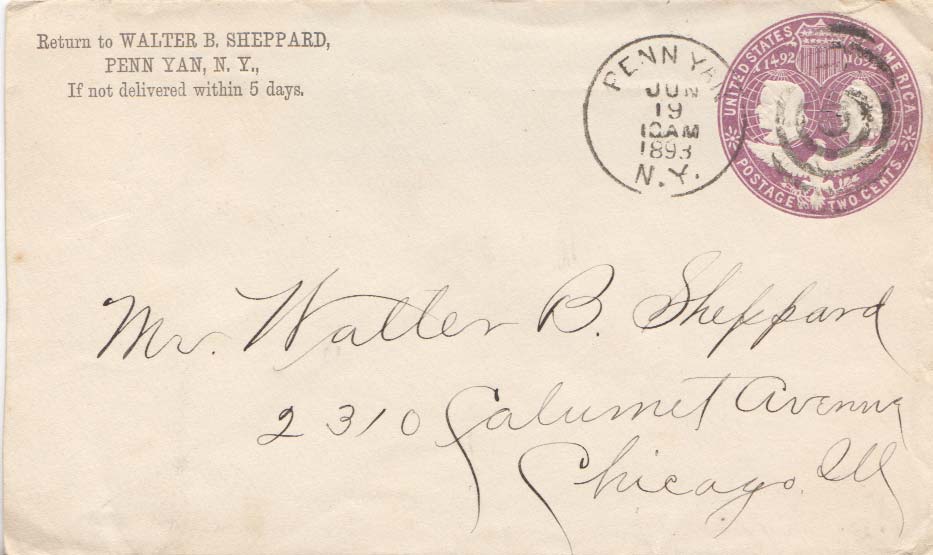 Return to WALTER B. SHEPPARD,
PENN YAN, N. Y.,
If not delivered within 5 days.
PENN YAN
JUN
19
10AM
1893
N.Y.
UNITED STATES OF AMERICA
1492 1892
POSTAGE TWO CENTS
Mr. Walter B. Sheppard
2310 Calumet Avenue
Chicago. Ill